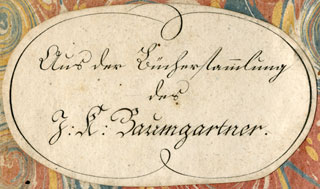 Aus der Büchersam̄lung
des
J: K: Baumgartner.